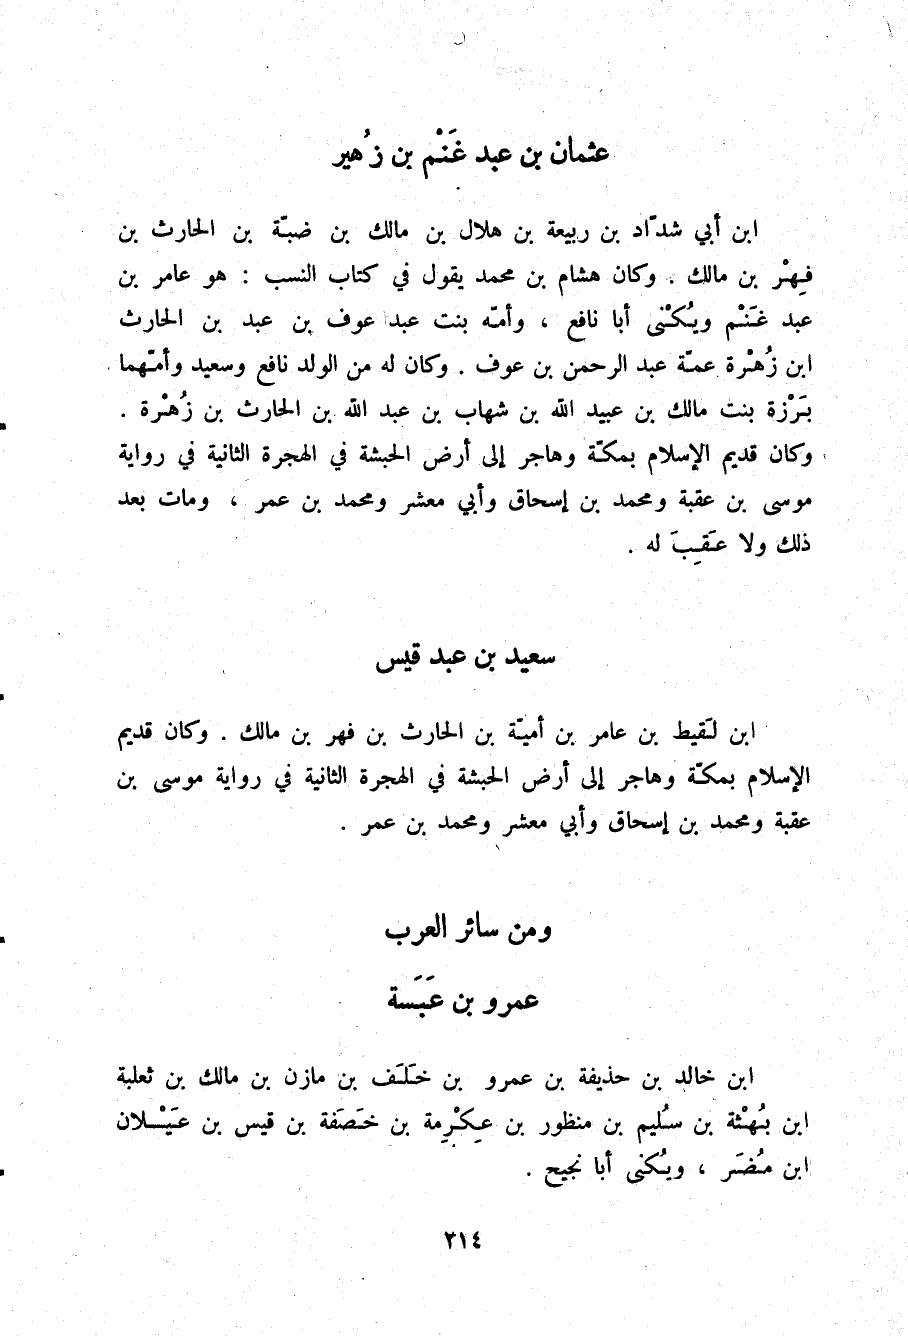 عثمان بن عبد غَنْم بن زُهير
ابن أبي شدّاد بن ربيعة بن هلال بن مالك بن ضبّة بن الحارث بن
فِهْر بن مالك . وكان هشام بن محمد يقول في كتاب النسب : هو عامر بن
عبد غَنْم ويُكنْى أبا نافع ، وأمّه بنت عبد عوف بن عبد بن الحارث
ابن زُهْرة عمّة عبد الرحمن بن عوف . وكان له من الولد نافع وسعيد وأمّهما
بَرْزة بنت مالك بن عبيد الله بن شهاب بن عبد الله بن الحارث بن زُهْرة .
وكان قديم الإسلام بمكّة وهاجر إلى أرض الحبشة في الهجرة الثانية في رواية
موسى بن عقبة ومحمد بن إسحاق وأبي معشر ومحمد بن عمر ، ومات بعد
ذلك ولا عَقِبَ له .
سعيد بن عبد قيس
ابن لَقيط بن عامر بن أميّة بن الحارث بن فهر بن مالك . وكان قديم
الإسلام بمكّة وهاجر إلى أرض الحبشة في الهجرة الثانية في رواية موسى بن
عقبة ومحمد بن إسحاق وأبي معشر ومحمد بن عمر .
ومن سائر العرب
عمرو بن عَبَسة
ابن خالد بن حذيفة بن عمرو بن خَلَف بن مازن بن مالك بن ثعلبة
ابن بُهْثة بن سُليم بن منظور بن عِكْرِمة بن خَصَفة بن قيس بن عَيْلان
ابن مُضَر ، ويُكنى أبا نجيح .
٢١٤